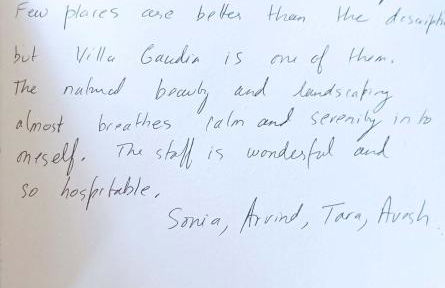 Few places are better than the descript
but Villa Gaudia is one of them.
The natural beauty and landscaping
almost breathes calm and serenity in to
oneself. The staff is wonderful and
so hospitable.
Sonia, Arvind, Tara, Avash